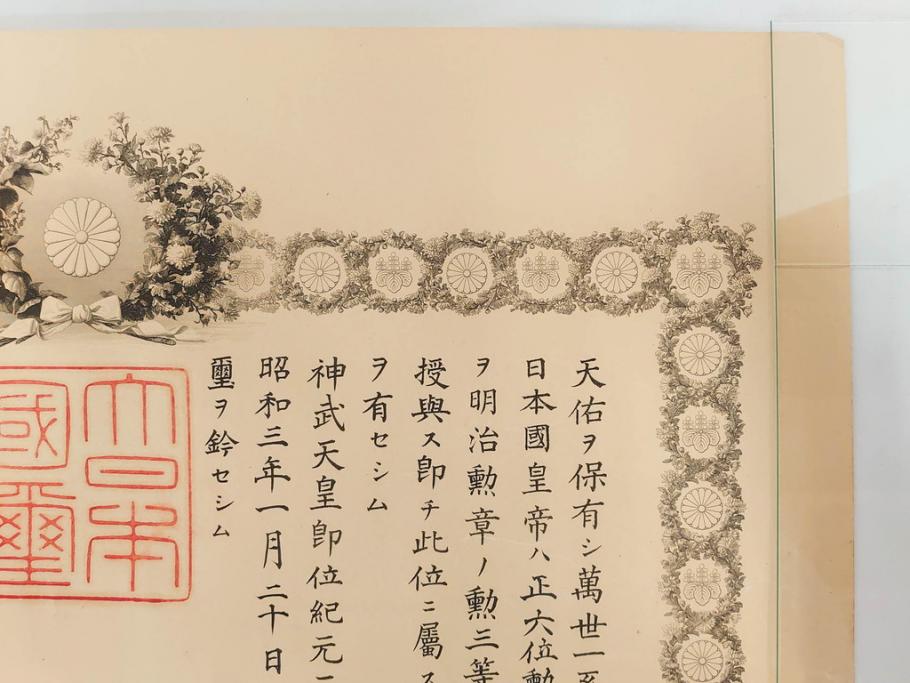 天佑ヲ保有シ萬世一
日本國皇帝ハ正六位勳
ヲ明治勳章ノ勳三等
授與ス即チ此位ニ屬ス
ヲ有セシム
神武天皇即位紀元二
昭和三年一月二十日
璽ヲ鈐セシム
大日本
國璽